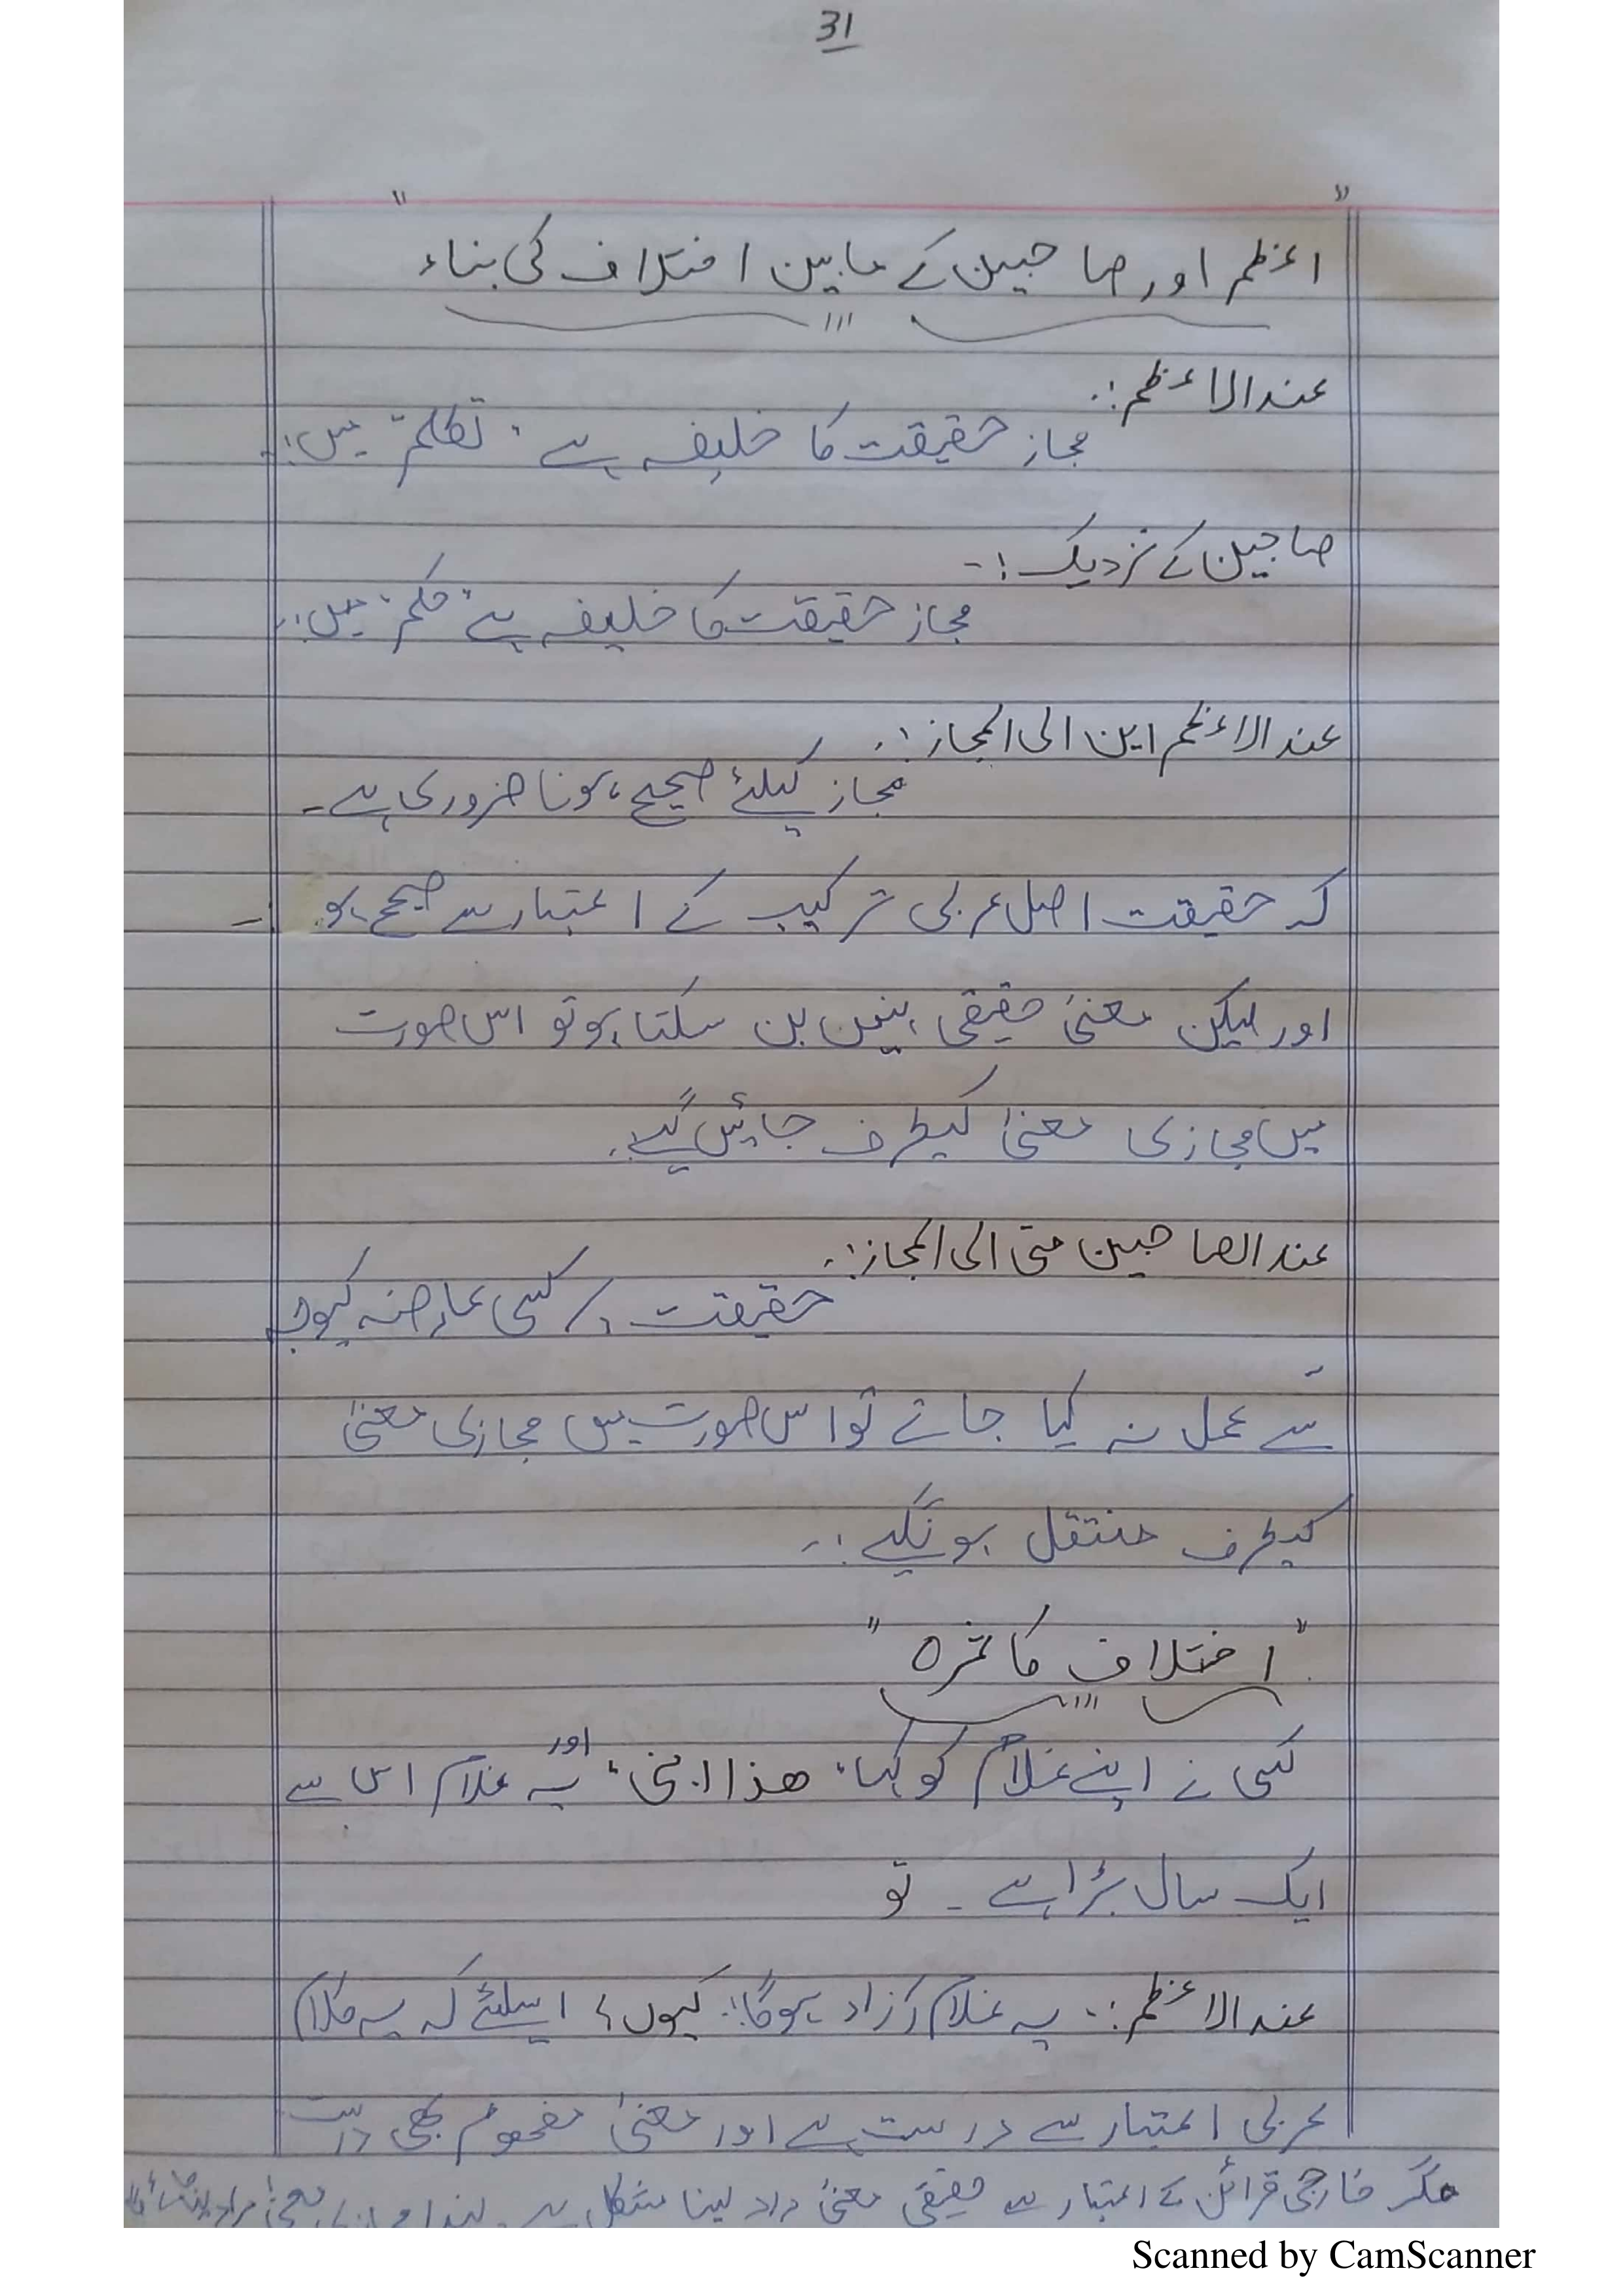 31
" اعظم اور صاحبین کے مابین اختلاف کی بناء "
عند الاعظم :.
مجاز حقیقت کا خلیفہ ہے "تکلم" میں :.
صاحبین کے نزدیک :-
مجاز حقیقت کا خلیفہ ہے "حکم" میں :.
عند الاعظم این الی المجاز :.
مجاز کیلئے صحیح ہونا ضروری ہے -
کہ حقیقت اصل عربی ترکیب کے اعتبار سے صحیح ہو :-
اور لیکن معنیٰ حقیقی نہیں بن سکتا ہو تو اس صورت
میں مجازی معنیٰ کیطرف جائیں گے :.
عند الصاحبین متی الی المجاز :.
حقیقت پر کسی عارضہ کیوجہ
سے عمل نہ کیا جائے تو اس صورت میں مجازی معنیٰ
کیطرف منتقل ہونگے :.
" اختلاف کا ثمرہ "
کسی نے اپنے غلام کو کہا " ھذا ابنی " اور یہ غلام اس سے
ایک سال بڑا ہے - تو
عند الاعظم :. یہ غلام آزاد ہوگا :. کیوں؟ اسلئے کہ یہ کلام
عربی اعتبار سے درست ہے اور معنیٰ مفہوم بھی درست
مگر خارجی قرائن کے اعتبار سے حقیقی معنیٰ مراد لینا مشکل ہے لہذا مجازی معنیٰ مراد
Scanned by CamScanner